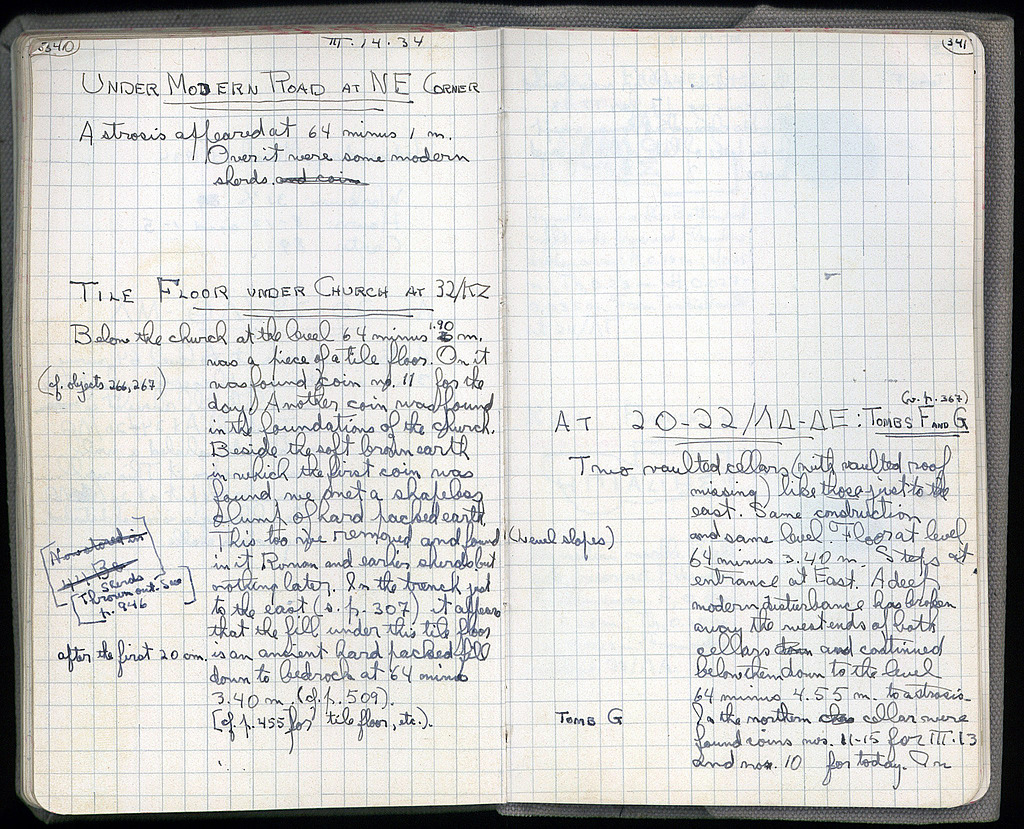 III.14.34
UNDER MODERN ROAD AT NE CORNER
A strosis appeared at 64 minus 1 m.
Over it were some modern
sherds. and coin
TILE FLOOR UNDER CHURCH AT 32/ΚΖ
Below the church at the level 64 minus 1.90 m.
was a piece of a tile floor. On it
(cf. objects 266, 267)
was found coin no. 11 for the
day. Another coin was found
in the foundations of the church.
Beside the soft brown earth
in which the first coin was
found, we met a shapeless
clump of hard packed earth.
This too we removed and found
in it Roman and earlier sherds but
nothing later. In the trench just
to the east (s. p. 307) it appears
that the fill under this tile floor
after the first 20 cm. is an ancient hard packed fill
down to bedrock at 64 minus
3.40 m. (cf. p. 509).
[cf. p. 455 for tile floor, etc.).
Now stored in
Sherds
Thrown out. See
p. 946
341
(v. p. 367)
AT 20-22/ΛΔ-ΛΕ: TOMBS F AND G
Two vaulted cellars (with vaulted roof
missing) like those just to the
east. Same construction
(level slopes) and same level. Floor at level
64 minus 3.40 m. Steps at
entrance at East. A deep
modern disturbance has broken
away the west ends of both
cellars down and continued
below them down to the level
64 minus 4.55 m. to a strosis.
TOMB G
In the northern cellar were
found coins nos. 11-15 for III.13
and no. 10 for today. In